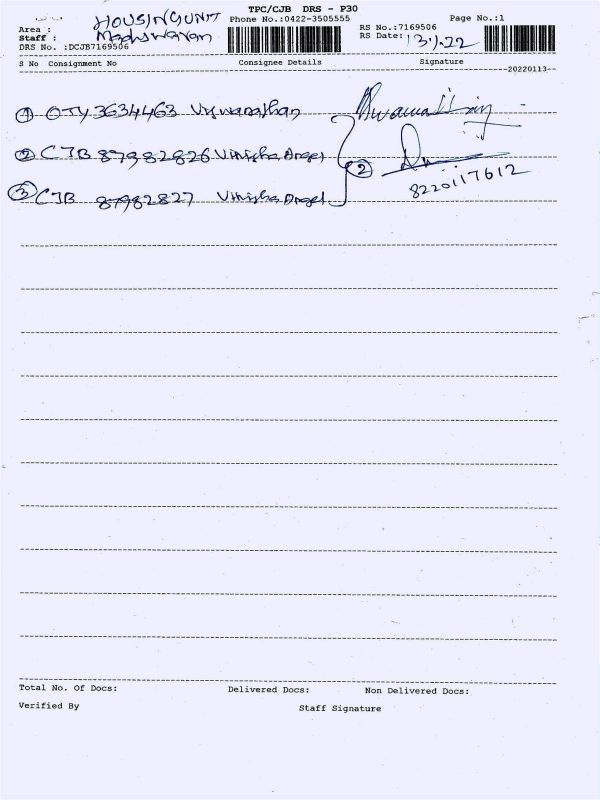 TPC/CJB DRS - P30
Area : HOUSINGUNIT Phone No.:0422-3505555 RS No.:7169506 Page No.:1
Staff : RS Date: 13/1/22
DRS No. :DCJB7169506
S No Consignment No Consignee Details Signature
20220113
1 OTY 3634463
2 CJB 87982826 Vinisha Angel 2
8220117612
3 CJB 87982827 Vinisha Angel
Total No. Of Docs: Delivered Docs: Non Delivered Docs:
Verified By Staff Signature